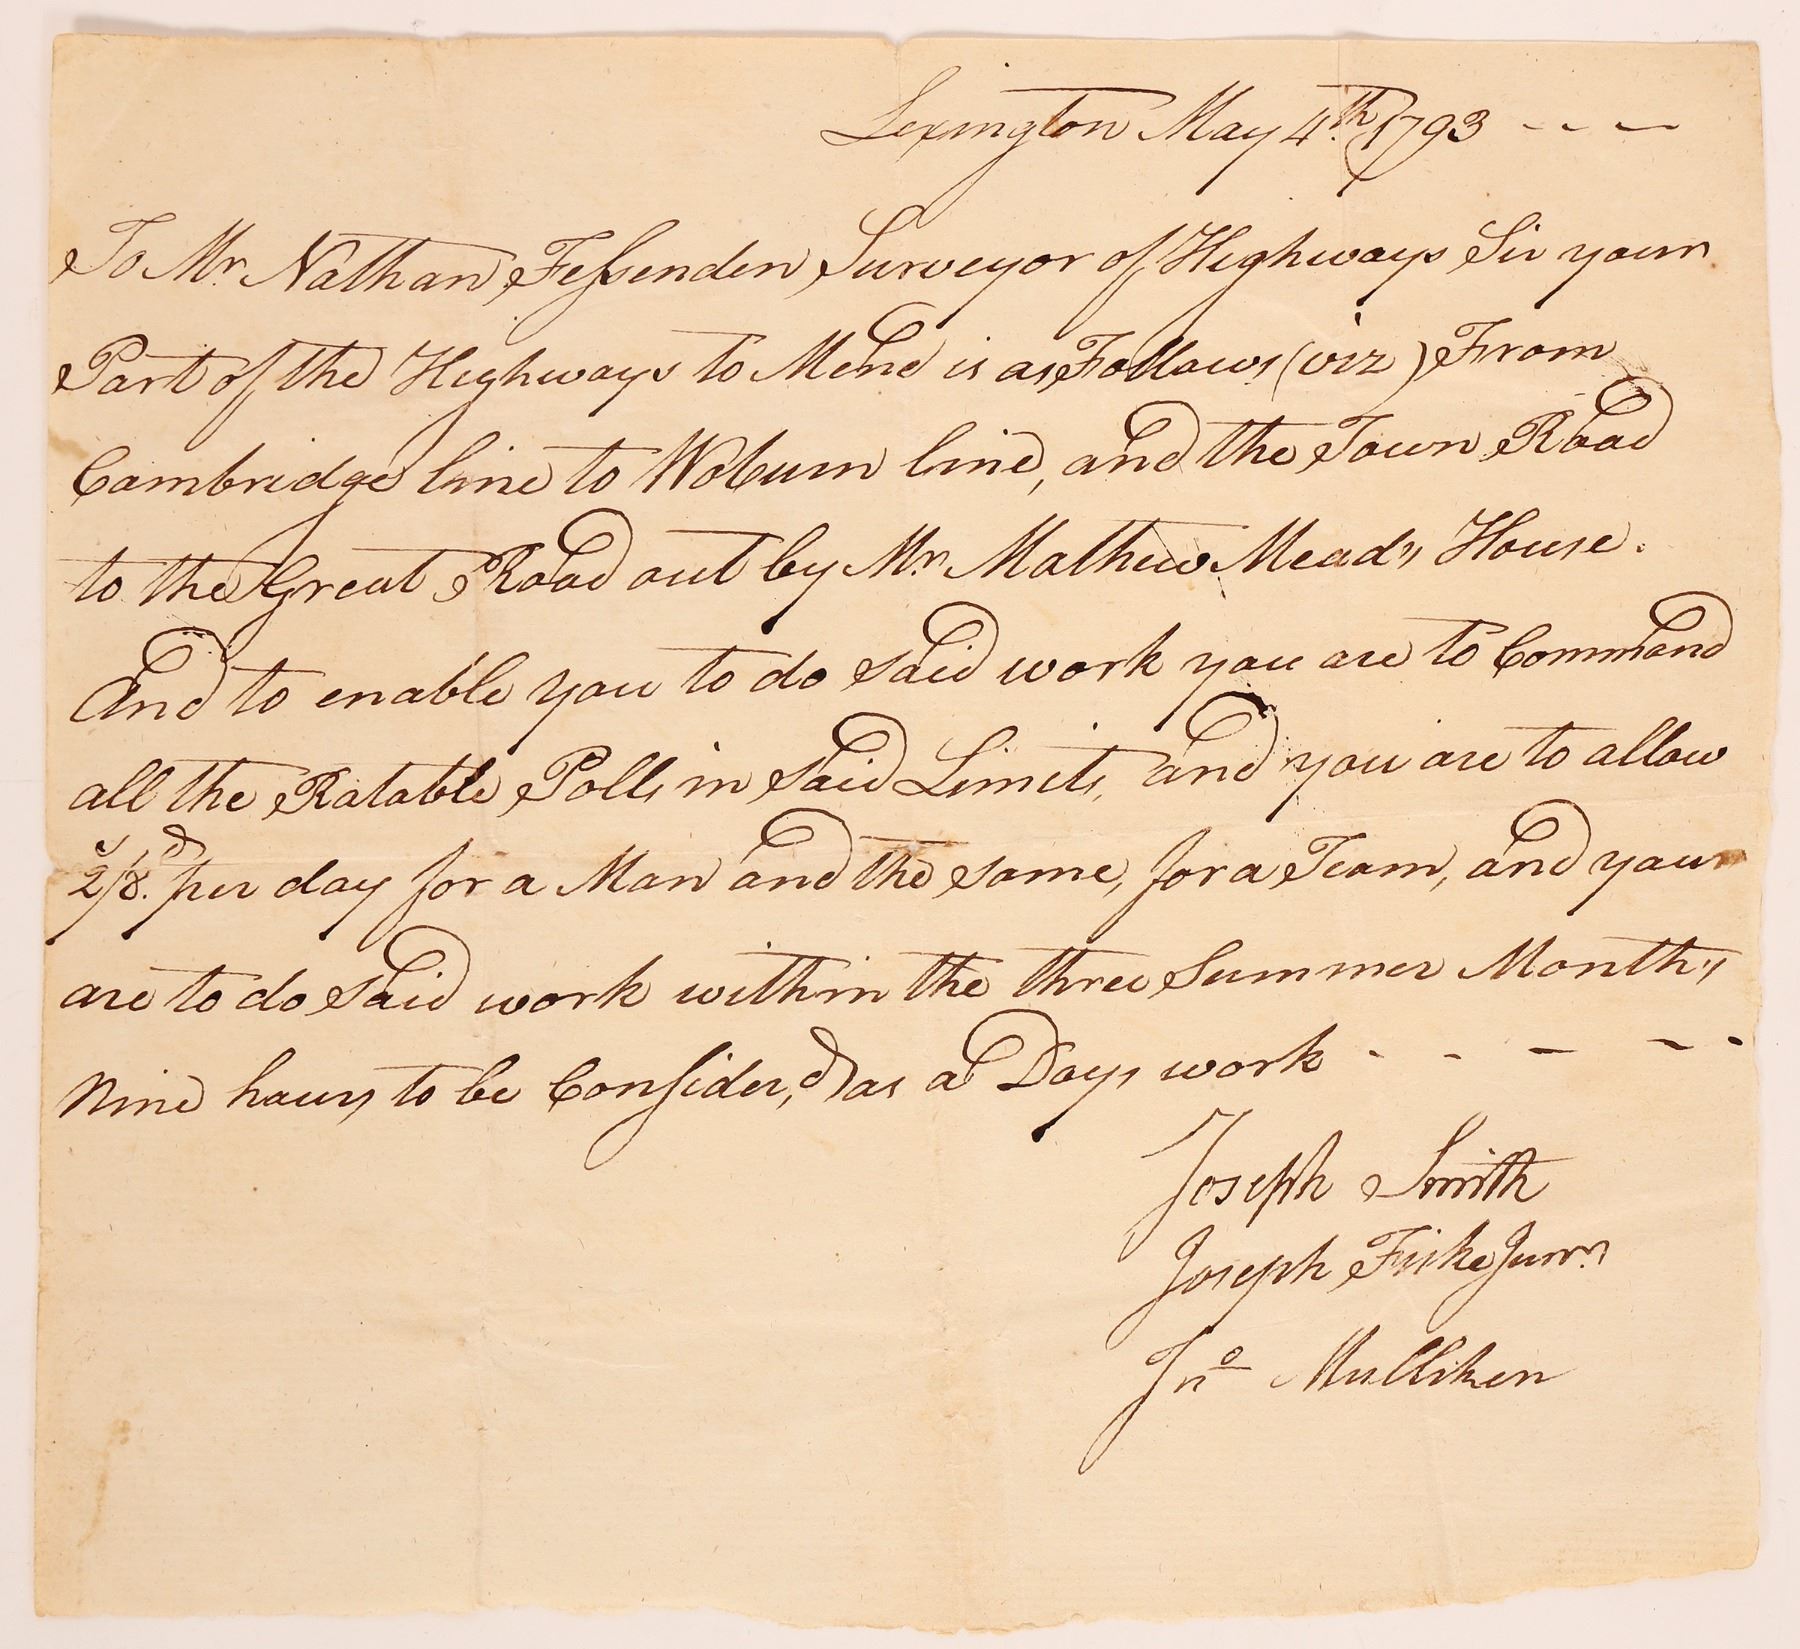 Lexington May 4th 1793 - - -
To Mr. Nathan Feſsenden Surveyor of Highways Sir your
Part of the Highways to Mend is as Follows (viz) From
Cambridge line to Woburn line, and the Town Road
to the Great Road out by Mr. Mathew Mead's House.
And to enable you to do said work you are to Command
all the Ratable Polls in said Limits, and you are to allow
2s/8d. per day for a Man and the same, for a Team, and you
are to do said work within the three Summer Month's
Nine hours to be Conſider,d as a Days work - - - - -
Joseph Smith
Joseph Fiske Junr.
Jno Mulliken